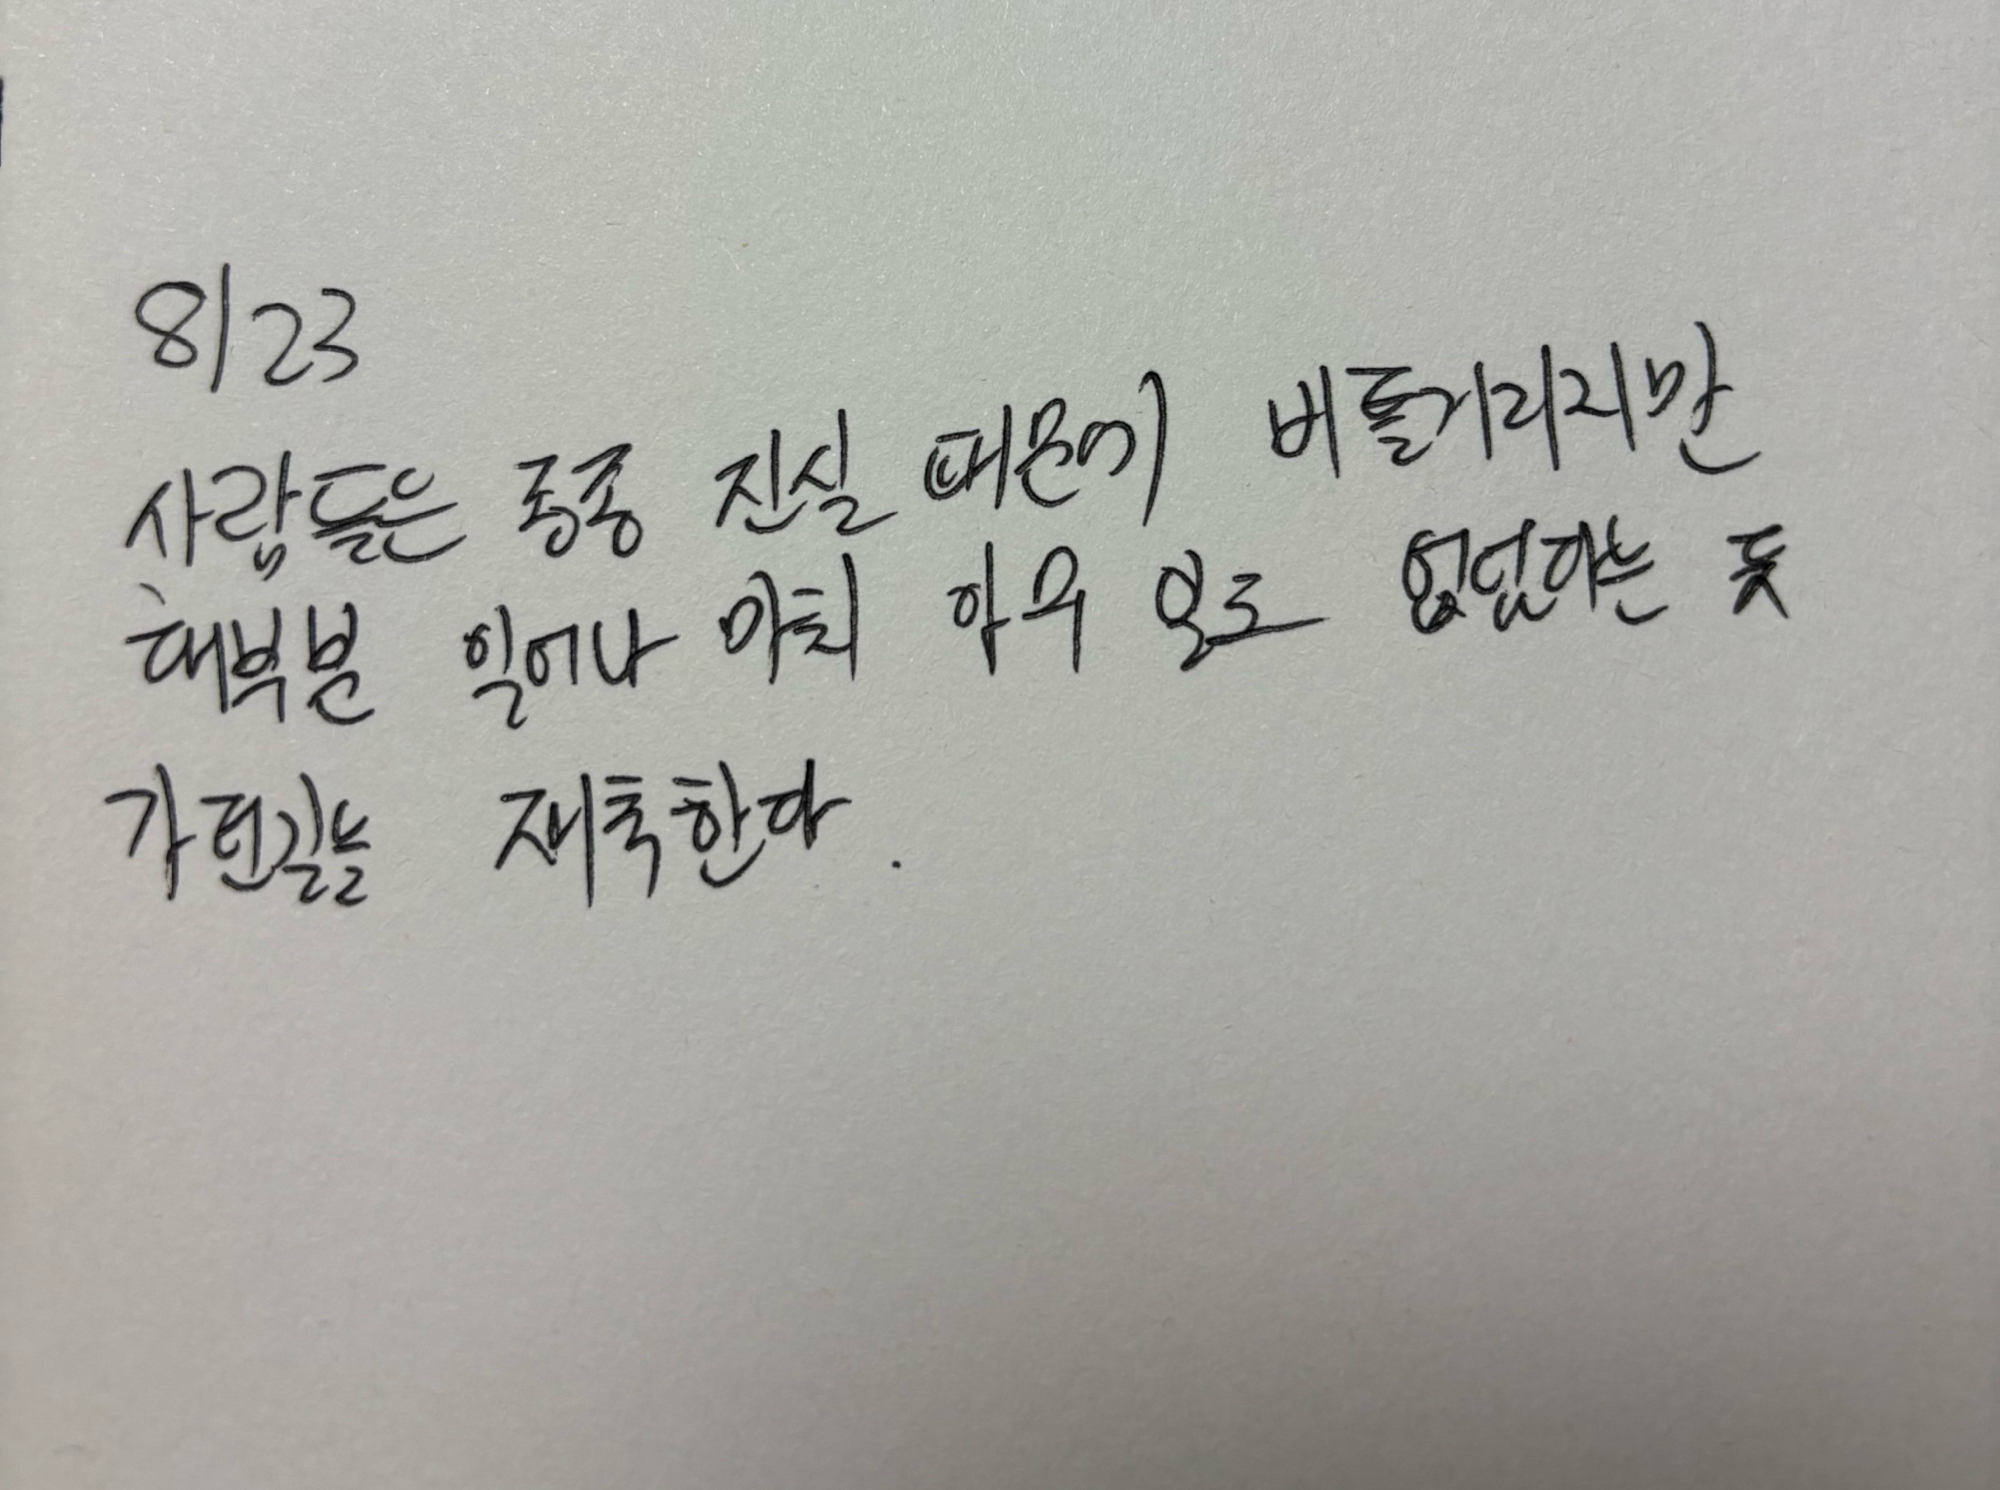 8/23
사람들은 종종 진실 때문에 버틀거리지만
대부분 일어나 마치 아무 일도 없었다는 듯
가던길을 재촉한다.